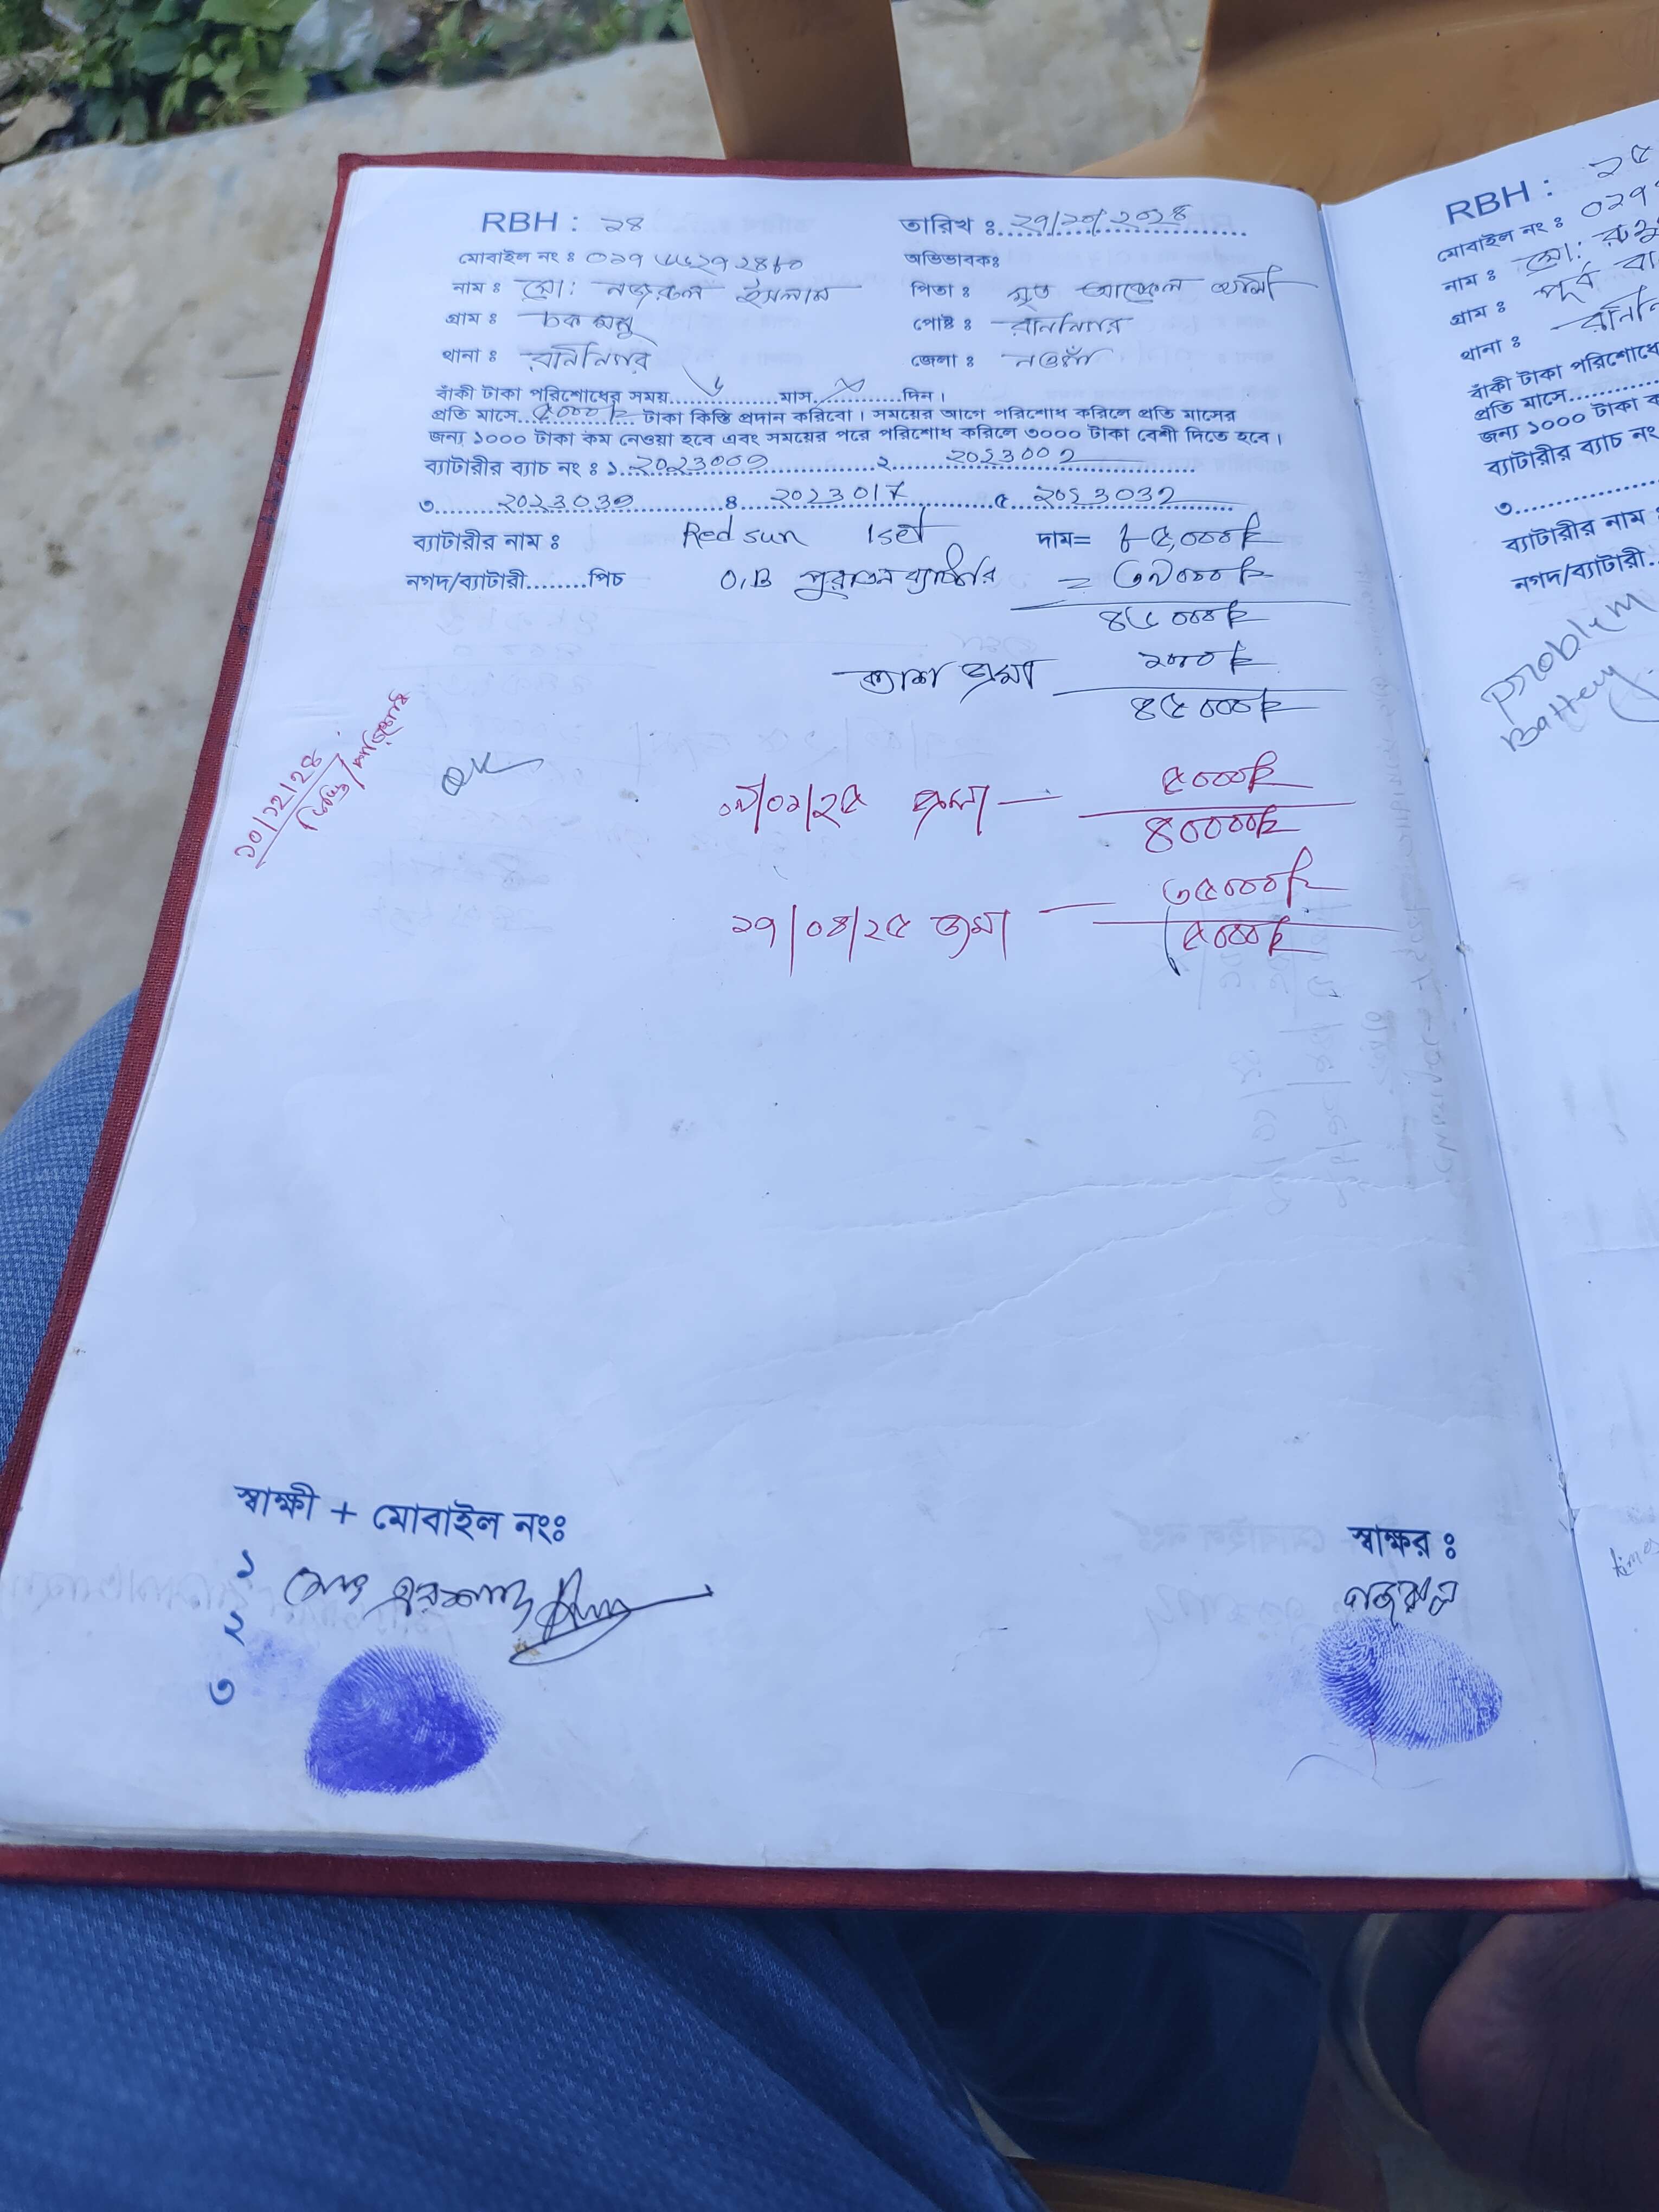 RBH : ২৪
তারিখ ঃ ২৭/১০/২০২৪
মোবাইল নং ঃ
অভিভাবকঃ
নাম ঃ মো: নজরুল ইসলাম
পিতা ঃ মৃত
গ্রাম ঃ চক মনু
পোষ্ট ঃ রানীনগর
থানা ঃ রানীনগর
জেলা ঃ নওগাঁ
বাঁকী টাকা পরিশোধের সময়..........৬..........মাস..........দিন।
প্রতি মাসে..৫০০০৳.. টাকা কিস্তি প্রদান করিবো। সময়ের আগে পরিশোধ করিলে প্রতি মাসের
জন্য ১০০০ টাকা কম নেওয়া হবে এবং সময়ের পরে পরিশোধ করিলে ৩০০০ টাকা বেশী দিতে হবে।
ব্যাটারীর ব্যাচ নং ঃ ১..........২..........
৩..........৪....2023017....৫....2023032....
ব্যাটারীর নাম ঃ Red sun 1set দাম= ৮৫,০০০৳
নগদ/ব্যাটারী........পিচ O,B পুরাতন ব্যাটারি = ৩৯০০০৳
৪৬০০০৳
ক্যাশ জমা ১০০০৳
৪৫০০০৳
২০/১২/২৪
OK
০৯/০১/২৫ জমা — ৫০০০৳
৪০০০০৳
২৭/০৪/২৫ জমা — ৩৫০০০৳
৫০০০৳
স্বাক্ষী + মোবাইল নংঃ
১ মোঃ এরশাদ
২
৩
স্বাক্ষর ঃ
নজরুল
RBH : ২৫
মোবাইল নং ঃ
নাম ঃ মো:
গ্রাম ঃ পূর্ব
থানা ঃ
বাঁকী টাকা পরিশোধে
প্রতি মাসে..........
জন্য ১০০০ টাকা ক
ব্যাটারীর ব্যাচ নং
৩..........
ব্যাটারীর নাম ঃ
নগদ/ব্যাটারী..
Problem
Battery